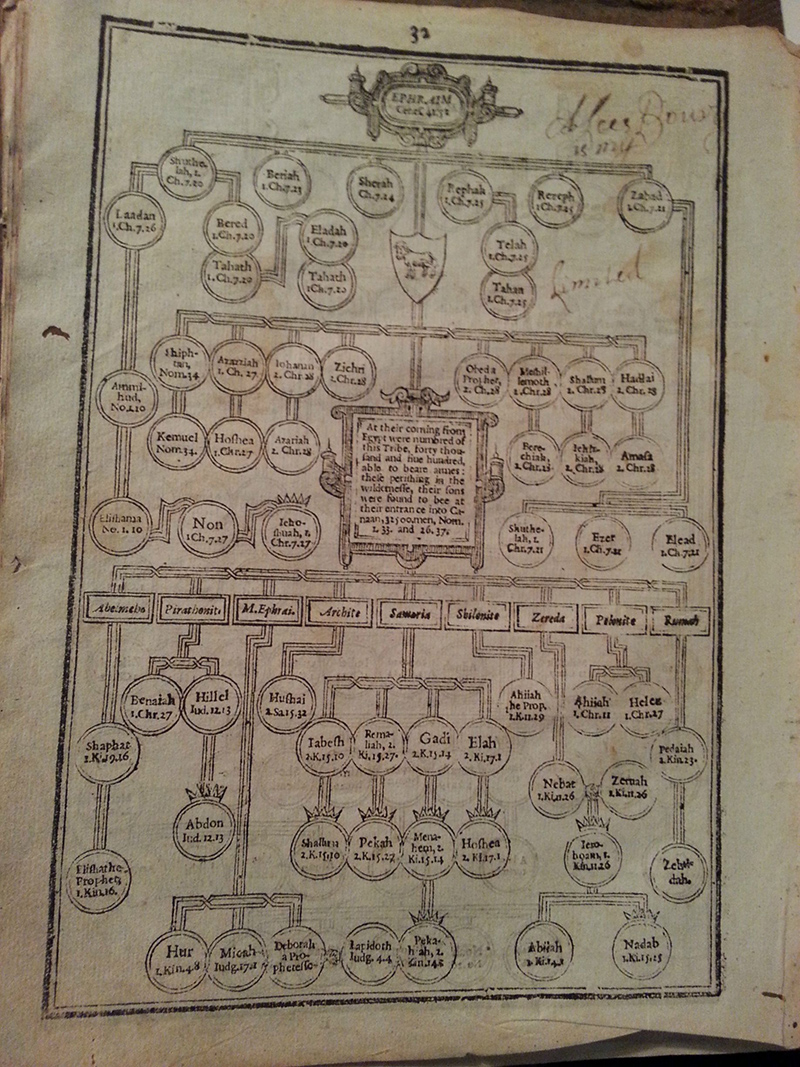 32
EPHRAIM
Gen. 41.52
Shuthe-
lah, 1.
Ch.7.20
Beriah
1.Ch.7.23
Sherah
Ch.7.24
Rephah
1.Ch.7.25
Rezeph
1Ch.7.25
Zabad
1.Ch.7.21
Laadan
1.Ch.7.26
Bered
1.Ch.7.20
Eladah
1Ch.7.20
Telah
1.Ch.7.25
Tahath
1.Ch.7.20
Tahath
1Ch.7.20
Tahan
1.Ch.7.25
Limited
Shiph-
tan,
Nom.34
Azaziah
1. Ch. 27
Iohanan
2. Chr.28
Zichri
2.Chr.28
Obeda
Prophet,
2. Ch.28
Meshil-
lemoth
2.Chr.28
Shallum
2.Chr.28
Hadlai
2.Chr.28
Ammi-
hud,
No.1.10
Kemuel
Nom.34.
Hoshea
1.Chr.27
Azariah
2. Chr.28
Bere-
chiah,
2.Chr.28
Iehiz-
kiah,
2.Chr.28
Amasa
2.Chr.28
At their coming from
Egypt were numbred of
this Tribe, forty thou-
sand and five hundred,
able to beare armes:
these perishing in the
wildernesse, their sons
were found to bee at
their entrance into Ca-
naan, 32500men, Nom.
1. 33. and 26. 37.
Elishama
No. 1. 10
Non
1Ch.7.27
Ieho-
shuah, 1.
Chr.7.27
Shuthe-
lah, 1.
Chr.7.21
Ezer
1.Ch.7.21
Elead
1.Ch.7.21
Abelmeho
Pirathonite
M.Ephrai.
Archite
Samaria
Shilonite
Zereda
Pelonite
Rumah
Benaiah
1.Chr.27
Hillel
Iud. 12.13
Hushai
2.Sa.15.32
Ahiiah
the Prop.
1.K.11.29
Ahiiah
1.Chr.11
Helez
1.Chr.27
Shaphat
1.Ki.19.16.
Iabesh
2.K.15.10
Rema-
liah, 2.
Ki.15.27.
Gadi
2.K.15.14
Elah
2.Ki.17.1
Pedaiah
2.Kin.23.
Nebat
1.Ki.11.26
Zeruah
1.Ki.11.26
Abdon
Iud. 12.13
Shallum
2.K.15.10
Pekah
2.K.15.27
Mena-
hem, 2.
Ki.15.14
Hoshea
2.Ki.17.1
Iero-
boam, 1.
Kin.11.26
Elisha the
Prophet,
1.Kin.16.
Zebu-
dah.
Hur
1.Kin.4.8
Micah
Iudg.17.1
Deborah
a Pro-
phetesse
Lapidoth
Iudg. 4.4
Peka-
hiah, 2.
Abiiah
Nadab
1.Ki.15.25